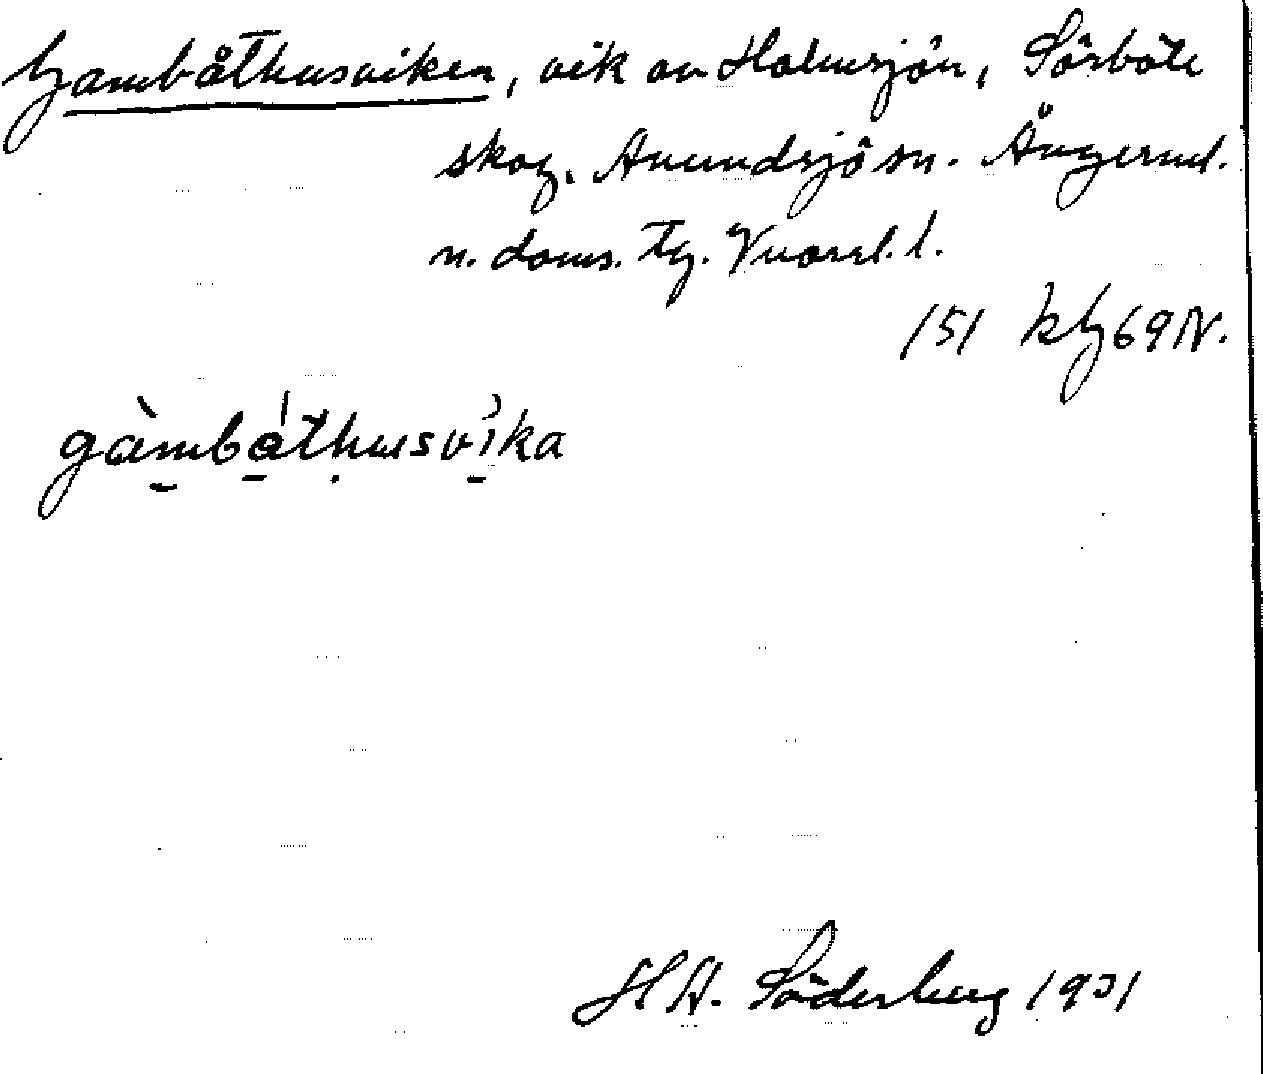 Gambåthusviken, vik av Holmsjön, Sörböle
skog. Anundsjö sn. Ångerml.
n. doms. tg.
151 kbg 69 N.
gàmbáthusvika
H A. Söderberg 1931